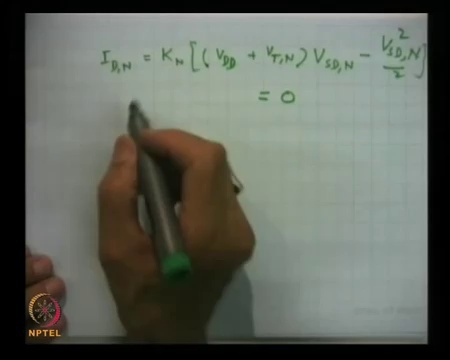 I_{D,N} = K_N [ (V_{DD} + V_{T,N}) V_{SD,N} - \frac{V_{SD,N}^2}{2} ]
= 0
NPTEL